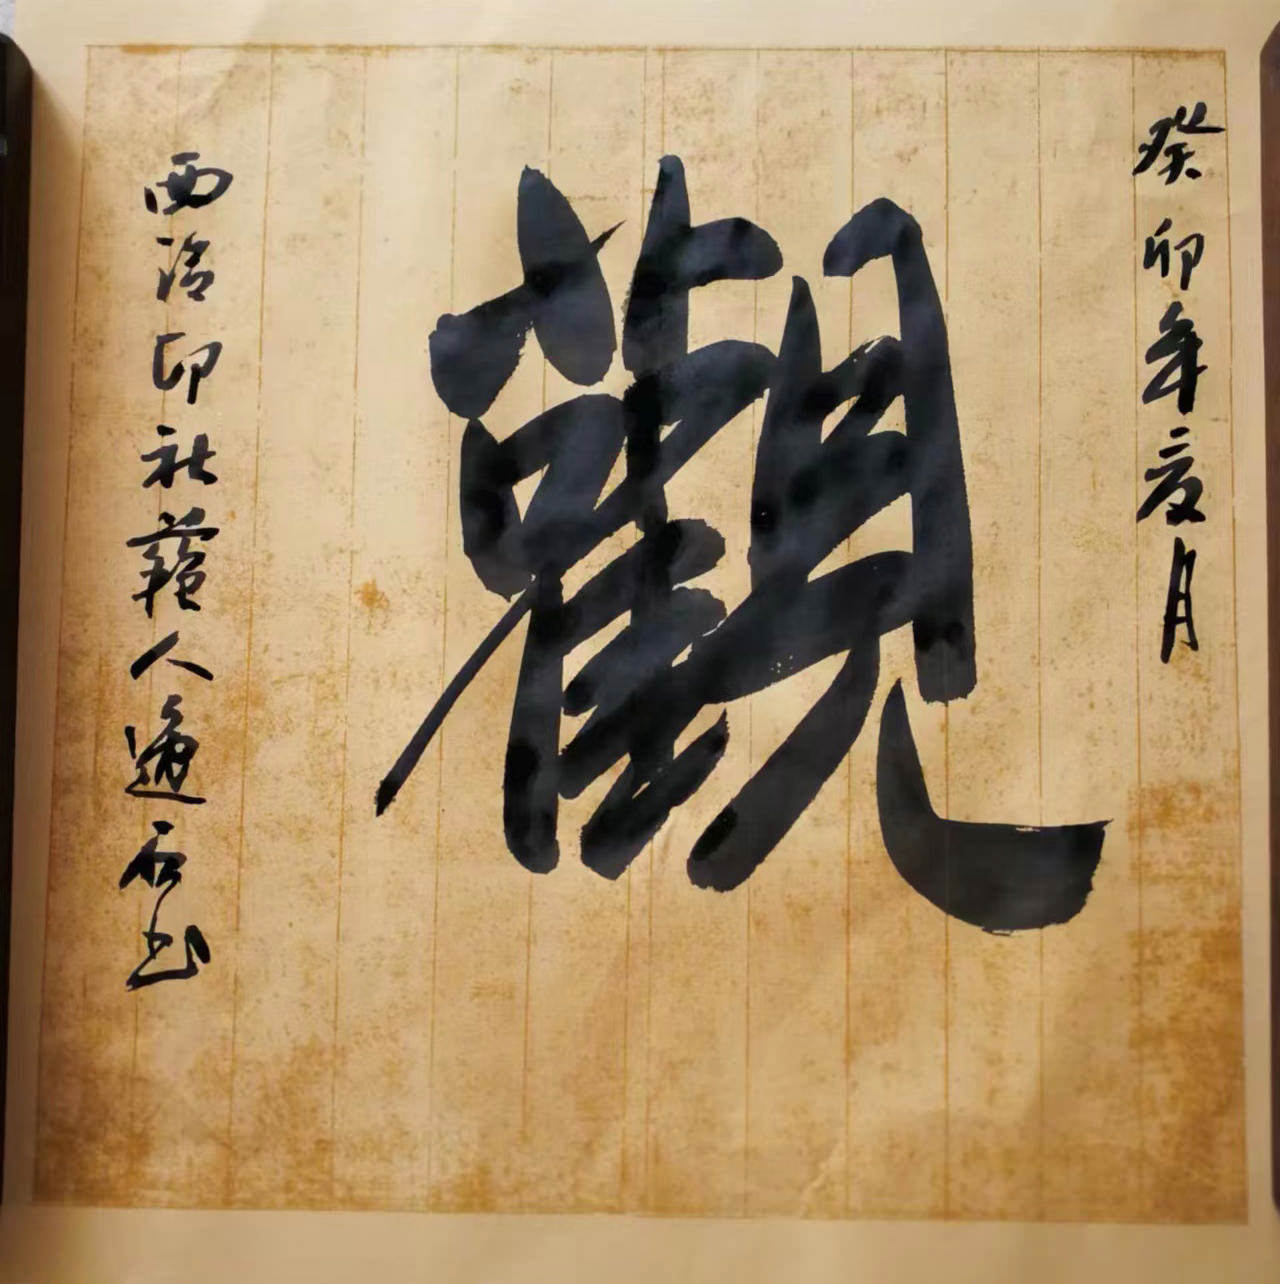 癸卯年夏月
觀
西泠印社人石书